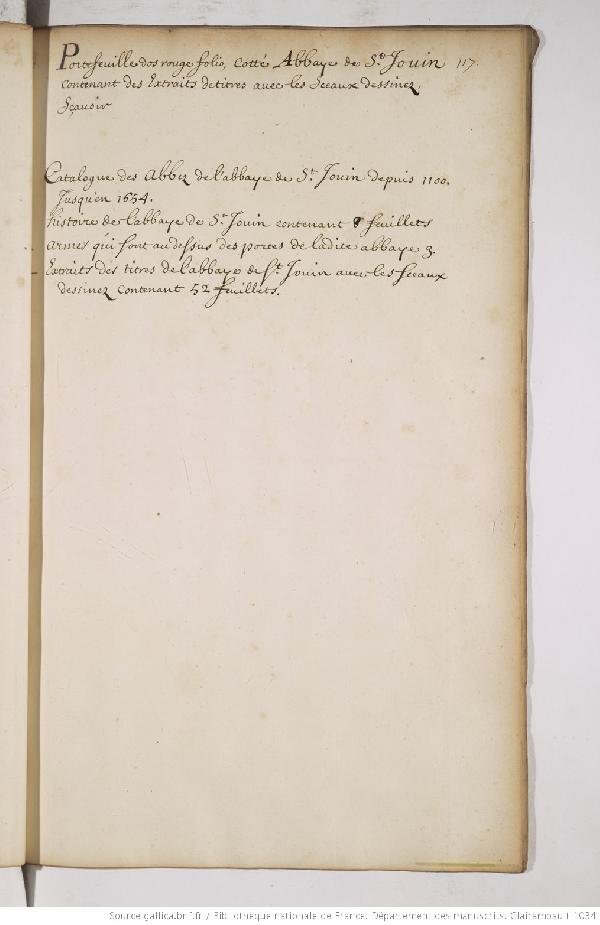 Portefeuille dos rouge folio, cotté Abbaye de St. Jouin 117.
contenant des Extraits de titres avec les sceaux dessinez,
Sçavoir
Catalogue des Abbez de l'abbaye de St. Jouin depuis 1100.
Jusqu'en 1654.
histoire de l'abbaye de St. Jouin contenant 8 feuillets
armes qui sont au dessus des portes de ladite abbaye 3.
Extraits des titres de l'abbaye de St. Jouin avec les sceaux
dessinez contenant 52 feuillets.
Source gallica.bnf.fr / Bibliothèque nationale de France. Département des manuscrits. Clairambault 1034